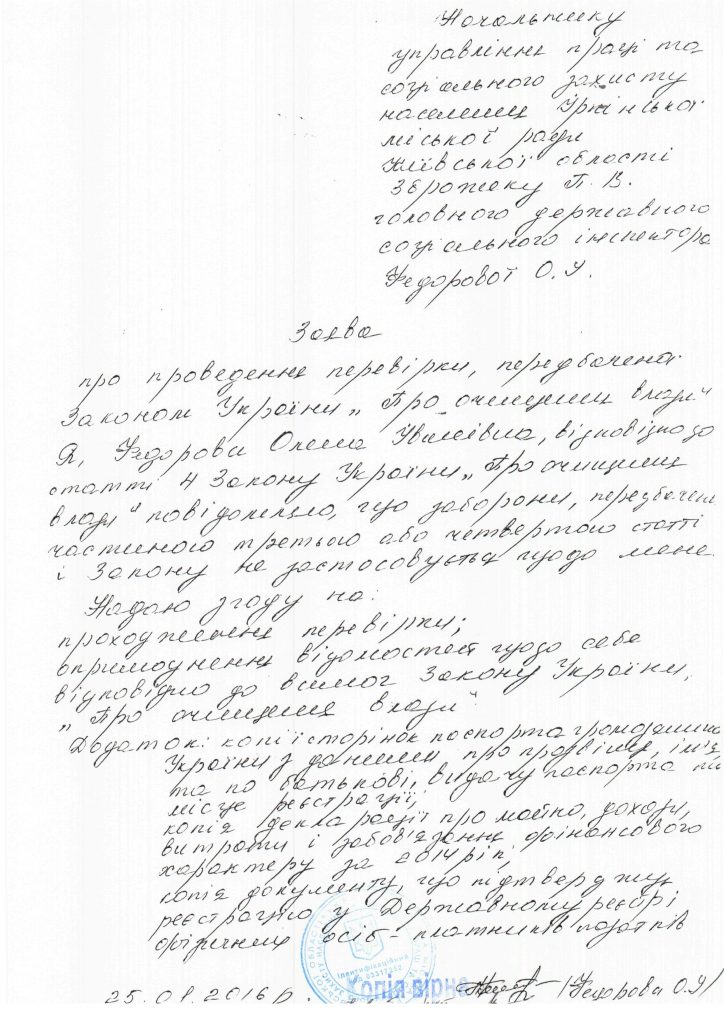 Начальнику
управління праці та
соціального захисту
населення Ірпінської
міської ради
Київської області
Зброжеку П. В.
головного державного
соціального інспектора
Федорової О.І.
Заява
про проведення перевірки, передбаченої
Законом України „Про очищення влади"
Я, Федорова Олена Іванівна, відповідно до
статті 4 Закону України „Про очищення
влади" повідомляю, що заборони, передбачені
частиною третьою або четвертою статті
1 Закону не застосовується щодо мене.
Надаю згоду на:
проходження перевірки;
оприлюднення відомостей щодо себе
відповідно до вимог Закону України,
„Про очищення влади"
Додаток: копії сторінок паспорта громадянина
України з даними про прізвище, ім'я
та по батькові, видачу паспорта та
місце реєстрації;
копія декларації про майно, доходи,
витрати і зобов'язання фінансового
характеру за 2014 рік;
копія документу, що підтверджує
реєстрацію у Державному реєстрі
фізичних осіб - платників податків
Ідентифікаційний
Копія вірна
25.01.2016р. /Федорова О.І/